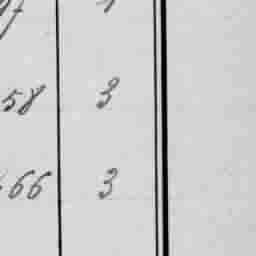 58 3
66 3